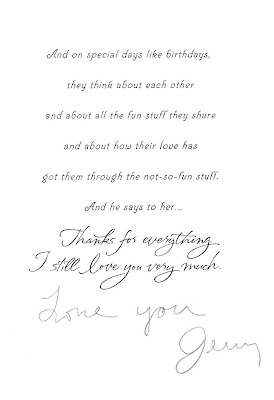 And on special days like birthdays,
they think about each other
and about all the fun stuff they share
and about how their love has
got them through the not-so-fun stuff.
And he says to her...
Thanks for everything.
I still love you very much.
Love you
Jerry